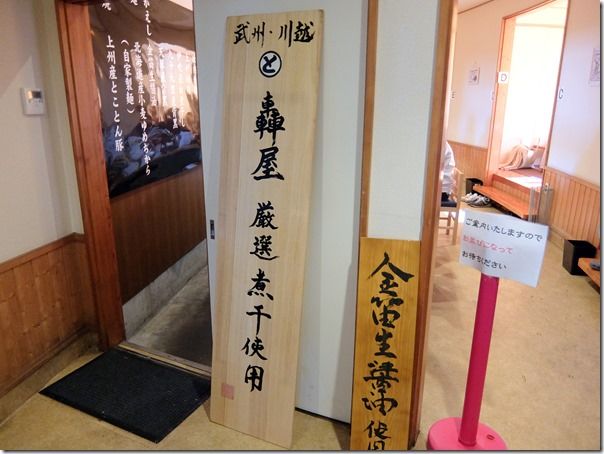 かえし
北海道産小麦ゆめちから
(自家製麺)
上州産とことん豚
武州・川越
と
轟屋 厳選煮干使用
金笛生醤油使用
ご案内いたしますので
お並びになって
お待ちください
D
C
E